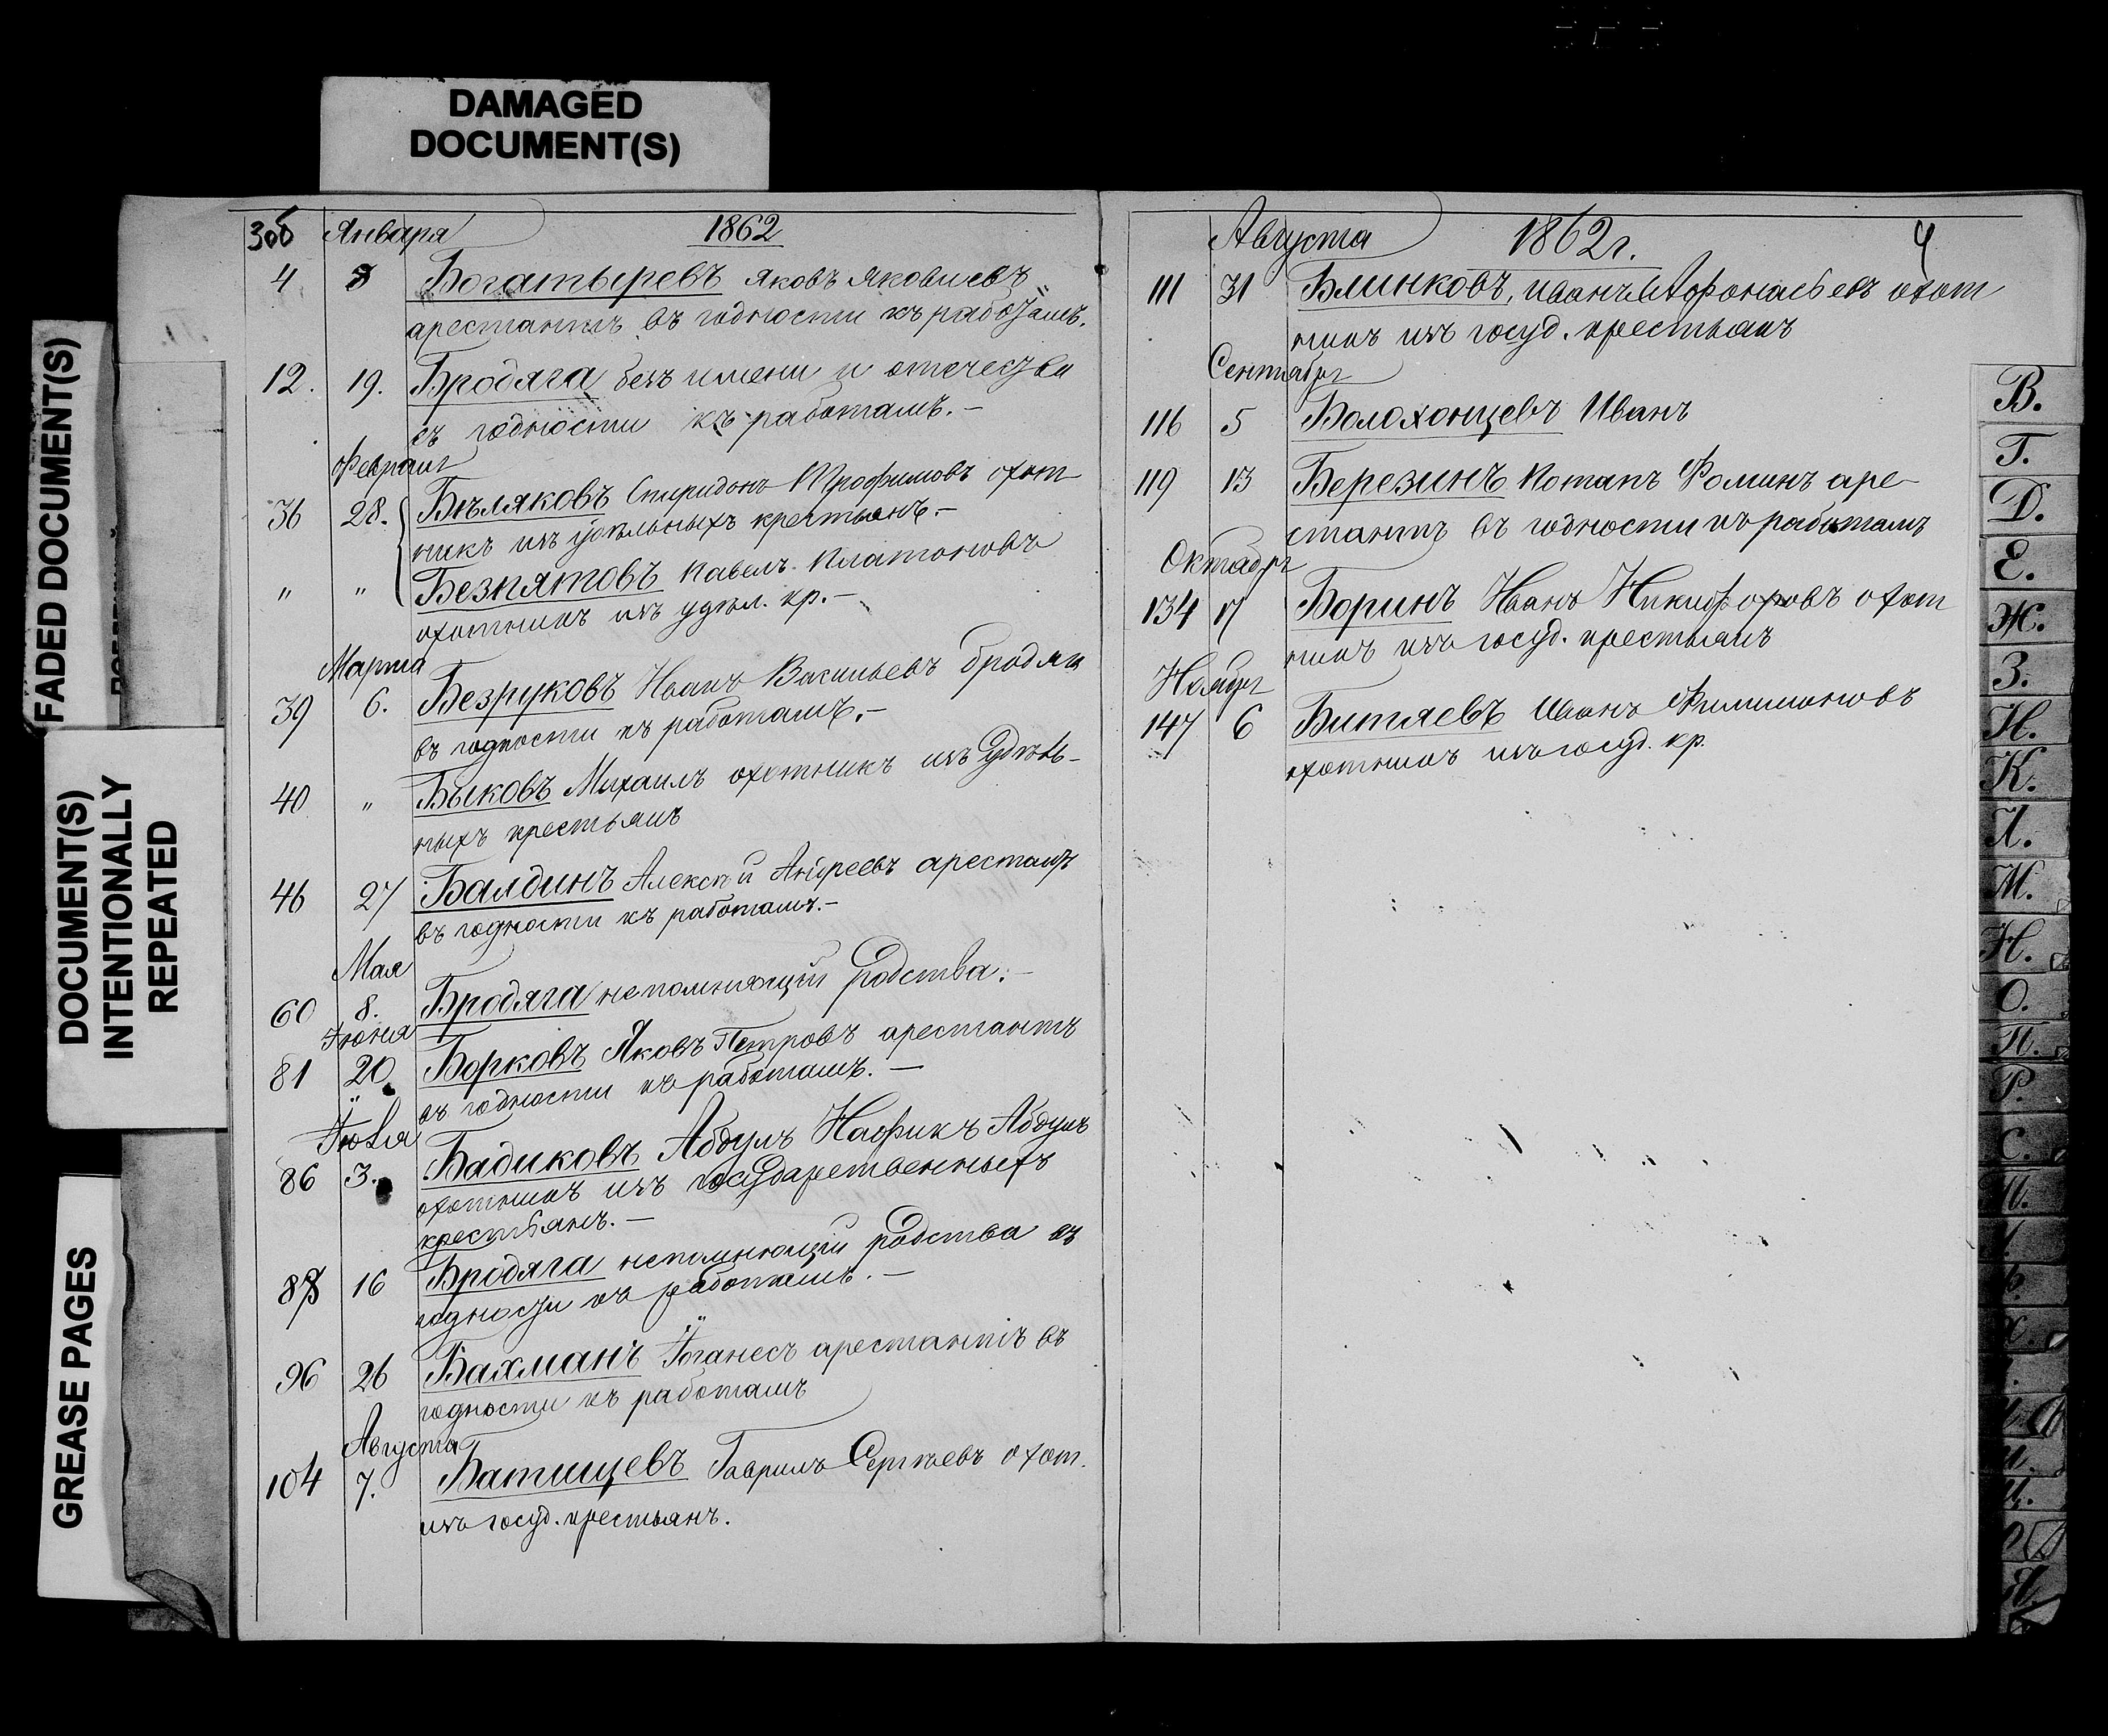 DAMAGED
DOCUMENT(S)
FADED DOCUMENT(S)
DOCUMENT(S)
INTENTIONALLY
REPEATED
GREASE PAGES
3об Января 1862
4 Богатыревъ Яковъ Яковлевъ
арестантъ въ годности къ работамъ.
12. 19. Бродяга безъ имени и отечества
въ годности къ работамъ.-
Февраля
36 28. Бѣляковъ Спиридонъ Трофимовъ охот
никъ изъ удѣльныхъ крестьянъ.-
" " Безпятовъ Павелъ Платоновъ
охотникъ изъ удѣл. кр.-
Марта
39 6. Безруковъ Иванъ Васильевъ бродяга
въ годности къ работамъ.-
40 " Быковъ Михаилъ охотникъ изъ Удѣль-
ныхъ крестьянъ
46 27 Балдинъ Алексѣй Андреевъ арестантъ
въ годности къ работамъ.-
Мая
60 8. Бродяга непомнящій родства.-
Іюня
81 20 Борковъ Яковъ Петровъ арестантъ
въ годности къ работамъ.-
Іюля
86 3. Бадиковъ Абдулъ Нафикъ Абдулъ
охотникъ изъ государственныхъ
крестьянъ.-
88 16 Бродяга непомнющій родства въ
годности къ работамъ.-
96 26 Бахманъ Іоганесъ арестантъ въ
годности къ работамъ
Августа
104 7. Батищевъ Гаврилъ Сергѣевъ охот.
изъ госуд. крестьянъ.
Августа 1862г. 4
111 31 Блинковъ, Иванъ Афонасьевъ охот
никъ изъ госуд. крестьянъ
Сентября
116 5 Болохонцевъ Иванъ
119 13 Березинъ Потапъ Фоминъ аре-
стантъ въ годности къ работамъ
Октября
134 17 Боринъ Иванъ Никифоровъ охот
никъ изъ госуд. крестьянъ
Ноября
147 6 Битяевъ Иванъ Филимоновъ
охотникъ изъ госуд. кр.
В.
Г.
Д.
Е.
Ж.
З.
И.
К.
Л.
М.
Н.
О.
П.
Р.
С.
Т.
Х.
Ц.
Я.